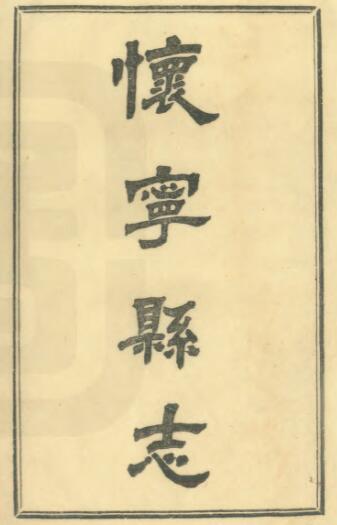 懷寧縣志